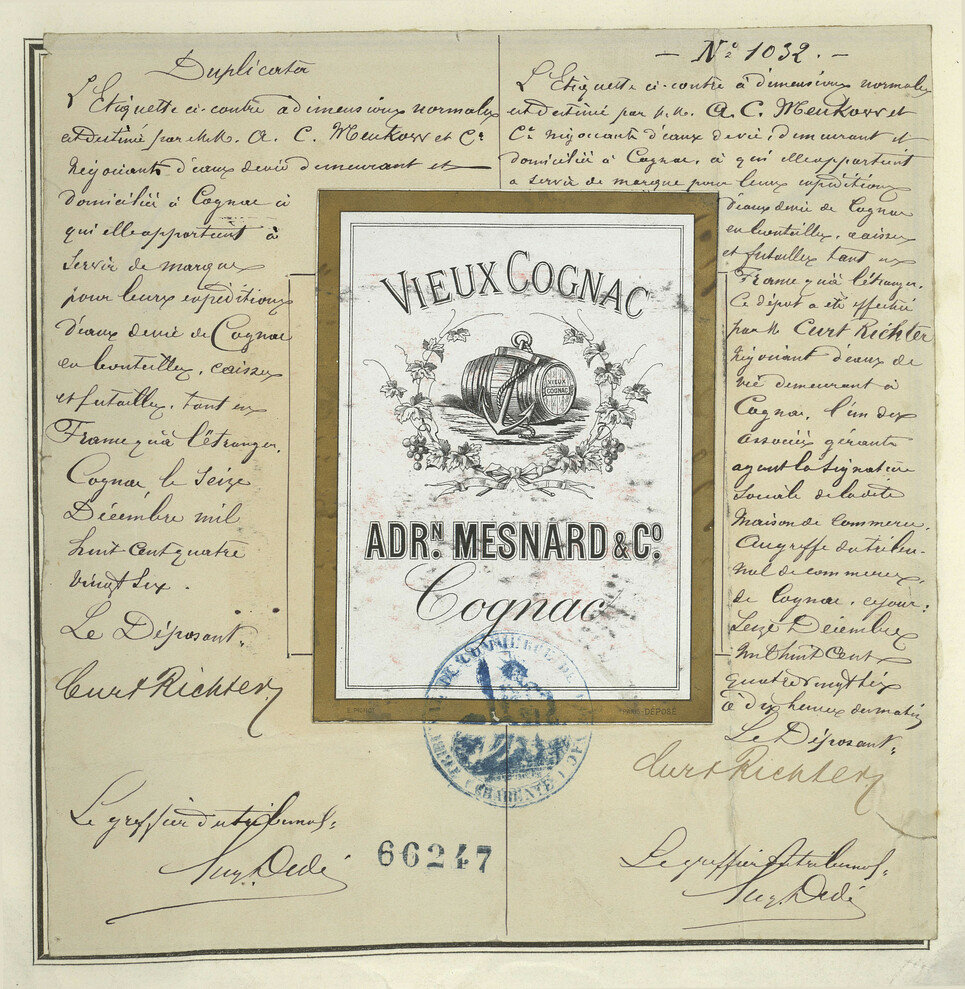 Duplicata
L'Etiquette ci-contre à dimensions normales
est destiné par M.M. A. C. Meukow et Cie
Négociants d'eaux de vie demeurant et
domiciliés à Cognac à
qui elle appartient à
servir de marque
pour leurs expéditions
d'eaux de vie de Cognac
en bouteilles, caisses
et futailles, tant en
France qu'à l'étranger.
Cognac le Seize
Décembre mil
huit cent quatre
vingt six.
Le Déposant:
Curt Richter
Le greffier du tribunal:
Aug. Dedé
- No 1032. -
L'Etiquette ci-contre à dimensions normales
est destiné par M.M. A. C. Meukow et
Cie négociants d'eaux de vie, demeurant et
domiciliés à Cognac, à qui elle appartient
à servir de marque pour leurs expéditions
d'eaux de vie de Cognac
en bouteilles, caisses
et futailles tant en
France qu'à l'étranger.
Ce dépôt a été effectué
par M Curt Richter
Négociant d'eaux de
vie demeurant à
Cognac, l'un des
associés gérants
ayant la signature
sociale de la dite
Maison de Commerce.
Au greffe du tribu-
nal de commerce
de Cognac, ce jour:
Seize Décembre
Mil huit Cent
quatre vingt six
à dix heures du matin
Le Déposant:
Curt Richter
Le greffier du tribunal:
Aug. Dedé
VIEUX COGNAC
VIEUX
COGNAC
ADRN. MESNARD & Co.
Cognac
DÉPOSÉ
COMMERCE DE
CHARENTE
66247